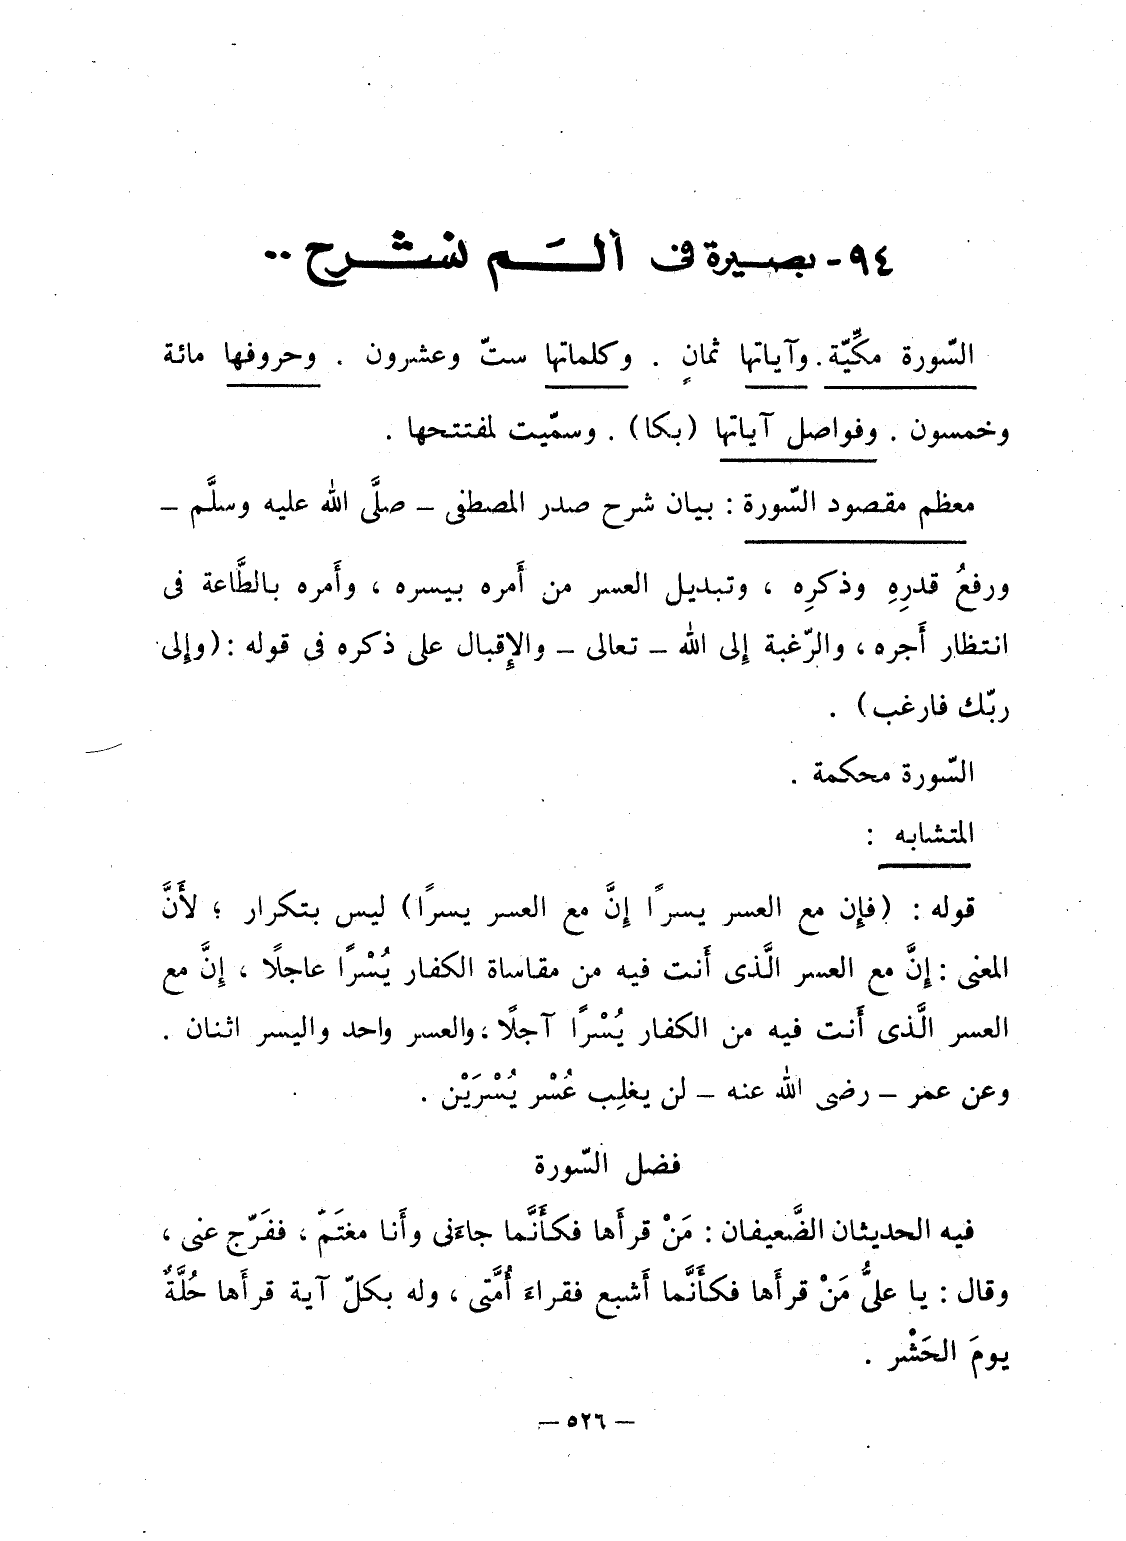 ٩٤ - بصيرة فى ألَم نشرح ..
السّورة مكِّيّة. وآياتها ثمانٍ . وكلماتها ستّ وعشرون . وحروفها مائة
وخمسون . وفواصل آياتها (بكا) . وسمّيت لمفتتحها .
معظم مقصود السّورة : بيان شرح صدر المصطفى – صلَّى الله عليه وسلَّم –
ورفعُ قدرِهِ وذكرِه ، وتبديل العسر من أَمره بيسره ، وأَمره بالطَّاعة فى
انتظار أَجره ، والرّغبة إلى الله – تعالى – والإِقبال على ذكره فى قوله : (وإِلى
ربّك فارغب) .
السّورة محكمة .
المتشابه :
قوله : (فإِن مع العسر يسرًا إِنَّ مع العسر يسرًا) ليس بتكرار ؛ لأَنَّ
المعنى : إِنَّ مع العسر الَّذى أَنت فيه من مقاساة الكفار يُسْرًا عاجلًا ، إِنَّ مع
العسر الَّذى أَنت فيه من الكفار يُسْرًا آجلًا ، والعسر واحد واليسر اثنان .
وعن عمر – رضى الله عنه – لن يغلِب عُسْر يُسْرَيْن .
فضل السّورة
فيه الحديثان الضَّعيفان : مَنْ قرأَها فكأَنَّما جاءَنى وأَنا مغتَمّ ، ففَرّج عنى ،
وقال : يا علىُّ مَنْ قرأَها فكأَنَّما أَشبع فقراءَ أُمَّتى ، وله بكلّ آية قرأَها حُلَّةٌ
يومَ الحَشْر .
– ٥٢٦ –